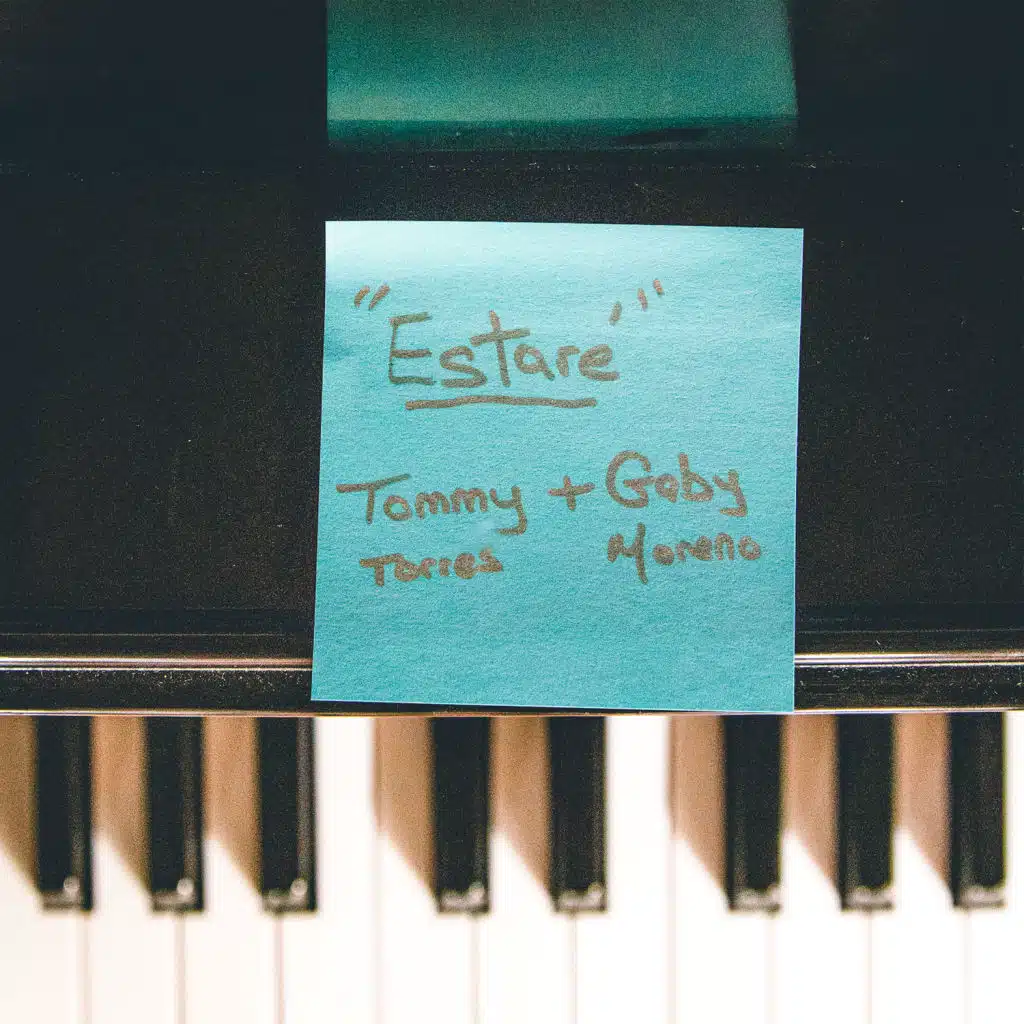 "Estaré"
Tommy + Gaby
Torres Moreno